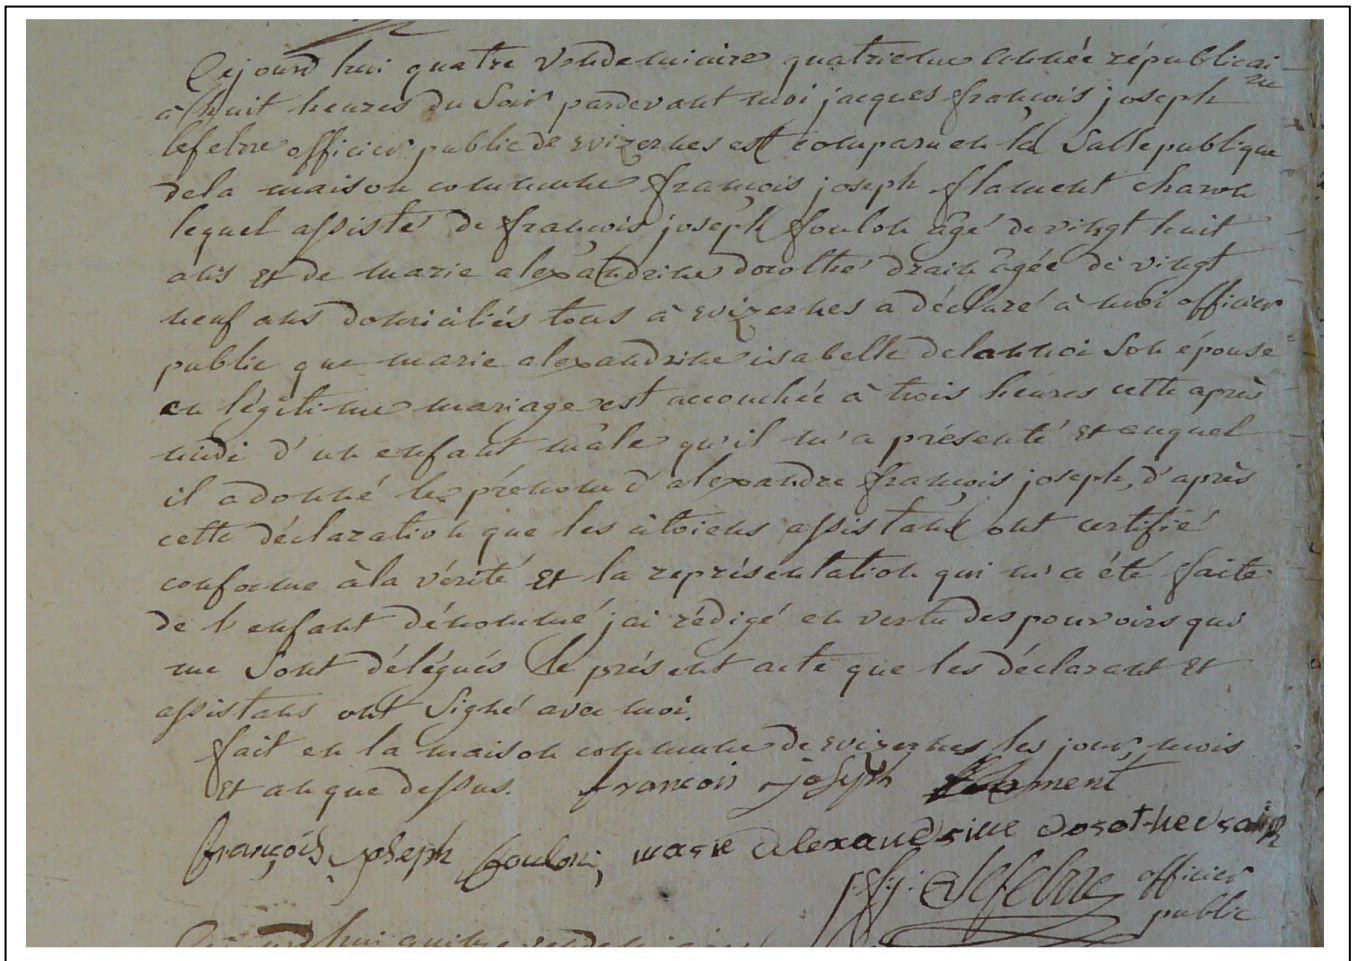 Cejourd'hui quatre vendemiaire quatrieme année républicai
ne
à huit heures du Soir pardevant moi jacques françois joseph
lefebre officier public de wizernes est comparu en la Salle publique
dela maison commune françois joseph flament charon
lequel assisté de françois joseph foulon âgé de vingt huit
ans et de marie alexandrine dorothé drain âgée de vingt
neuf ans domiciliés tous à wizernes a déclaré à moi officier
public que marie alexandrine isabelle delannoi Son épouse
en légitime mariage est accouchée à trois heures cette après
midi d'un enfant mâle qu'il m'a présenté et auquel
il a donné les prénom d'alexandre françois joseph, d'après
cette déclaration que les citoiens assistans ont certifié
conforme à la vérité et la représentation qui m'a été faite
de l'enfant dénommé j'ai rédigé en vertu des pouvoirs qui
me Sont délégués le présent acte que les déclarant et
assistans ont Signé avec moi.
fait en la maison commune de wizernes les jour, mois
et an que dessus. françois joseph flament
françois joseph foulon, marie alexandrine dorothe
j.f.j. Lefebre officier
public